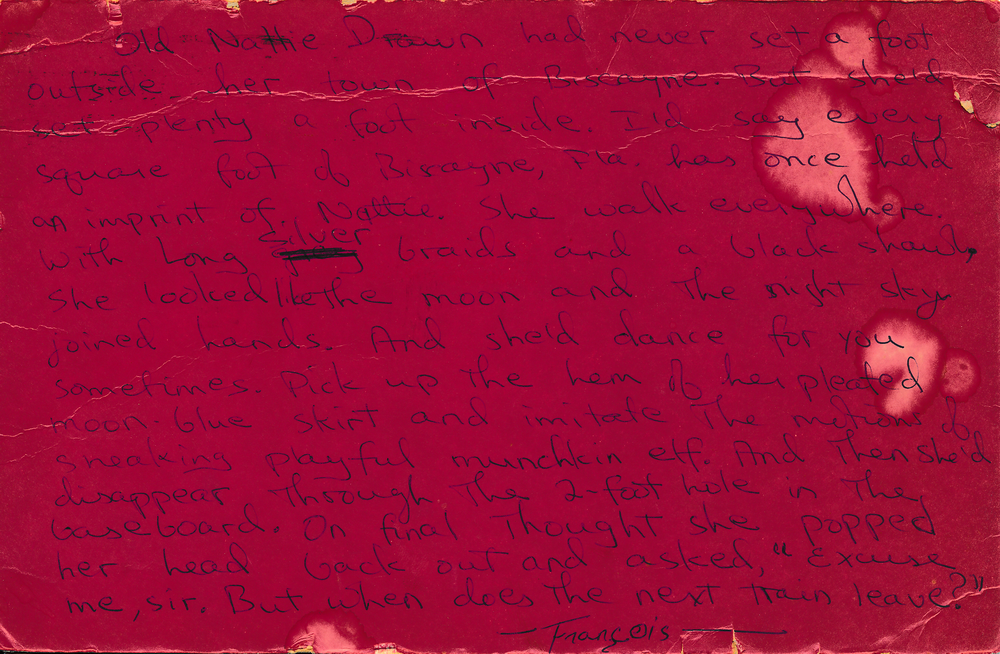 Old Nattie Drawn had never set a foot
outside her town of Biscayne. But she'd
set plenty a foot inside. I'd say every
square foot of Biscayne, Fla. has once held
an imprint of Nattie. She walk everywhere.
With Long Silver braids and a black shawl,
She looked like the moon and the night sky
joined hands. And she'd dance for you
sometimes. Pick up the hem of her pleated
moon-blue skirt and imitate the motions of
sneaking playful munchkin elf. And Then she'd
disappear through the 2-foot hole in the
baseboard. On final Thought she popped
her head back out and asked, "Excuse
me, sir. But when does the next train leave?"
— François —